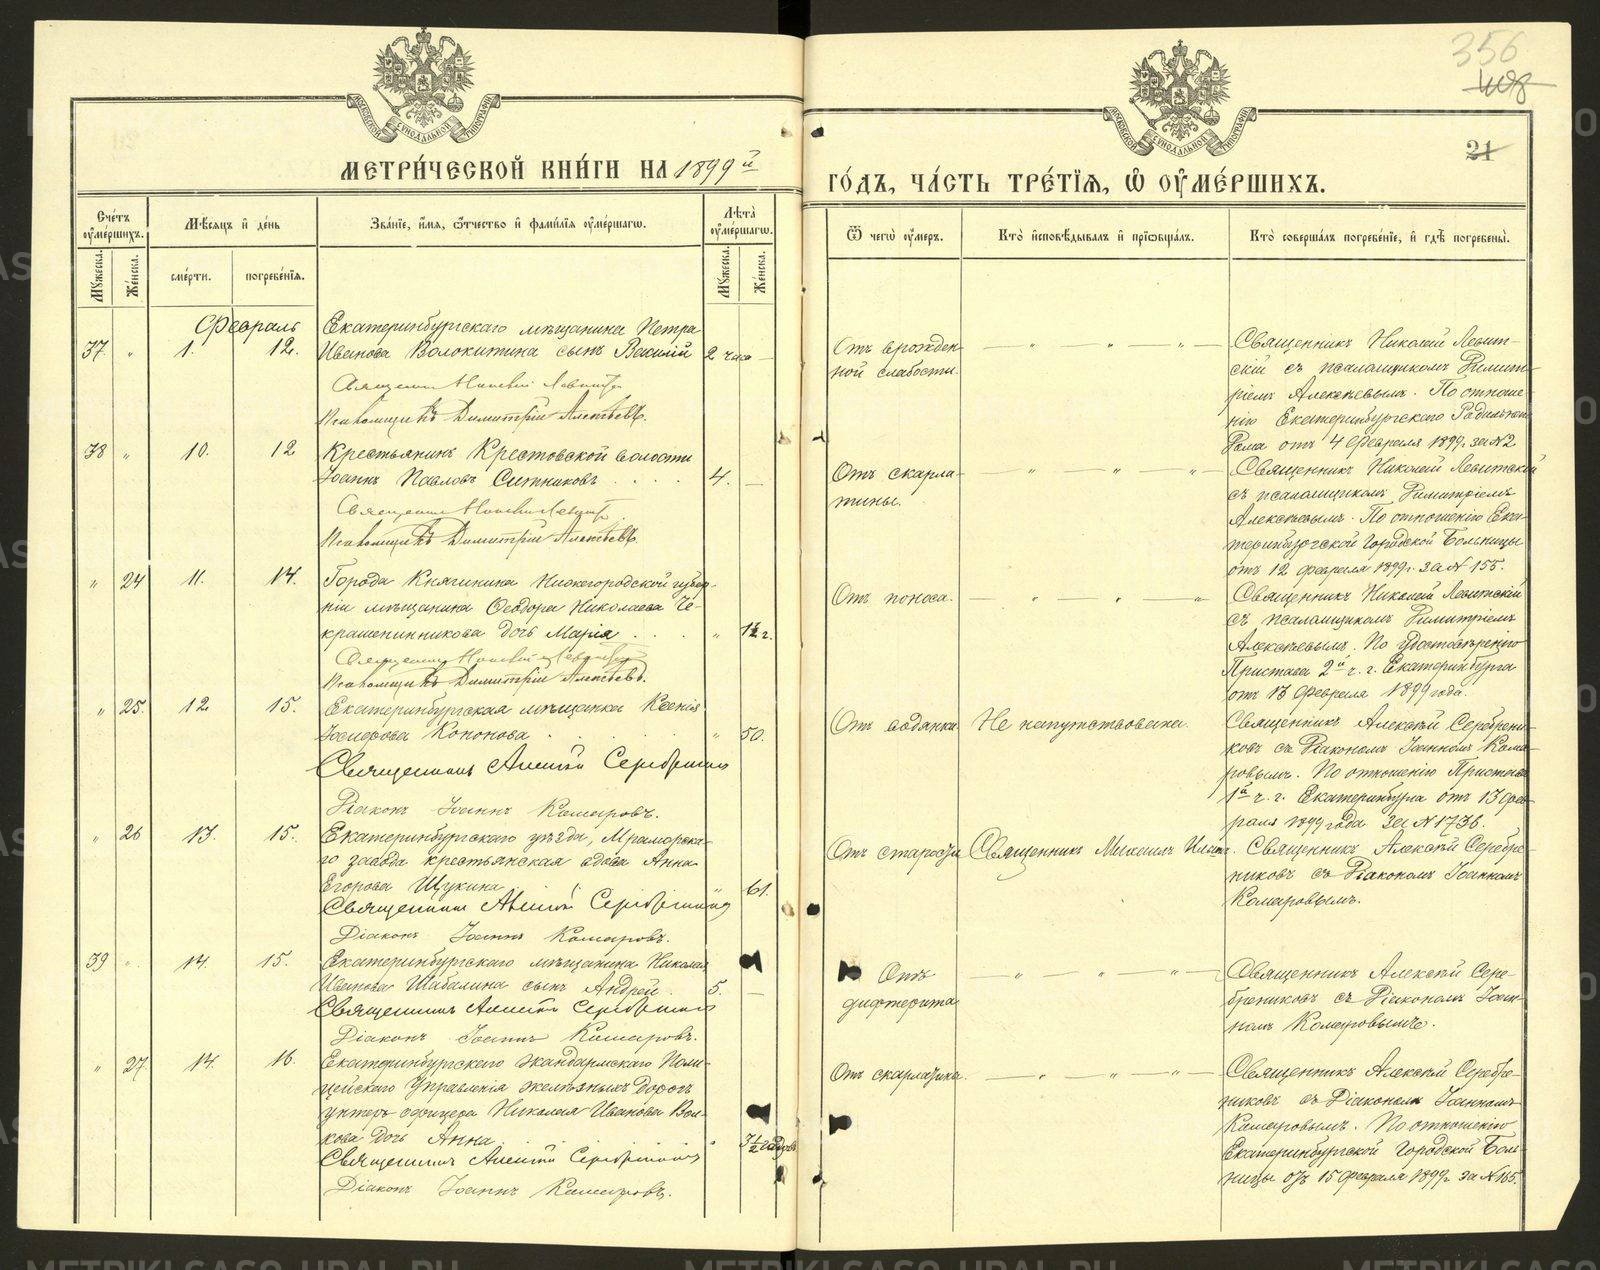 356
МЕТРИ́ЧЕСКОЙ КНИ́ГИ НА 1899й
ГО́ДЪ, ЧА́СТЬ ТРЕ́ТІЯ, Ѿ ОУМЕ́РШИХЪ.
21
МОСКОВСКОЙ СУНОДАЛЬНОЙ ТИПОГРАФІИ
МОСКОВСКОЙ СУНОДАЛЬНОЙ ТИПОГРАФІИ
Сче́тъ оуме́ршихъ.
Мꙋжеска.
Же́нска.
Мѣсѧцъ и҆ де́нь
сме́рти.
погребе́нїѧ.
Зва́нїе, и҆́мѧ, ѻ҆́тчество и҆ фами́лїѧ оуме́ршагѡ.
Лѣта̀ оуме́ршагѡ.
Мꙋжеска.
Же́нска.
Ѿ чегѡ̀ оу́меръ.
Кто̀ и҆сповѣ́дывалъ и҆ прїѡбща́лъ.
Кто̀ соверша́лъ погребе́нїе, и҆ гдѣ̀ погребены̀.
Февраль
37 " 1. 12. Екатеринбургскаго мѣщанина Петра
Иванова Волокитина сынъ Василій 2 часа —
Священникъ Николай Левитскій
Псаломщикъ Димитрій Алексѣевъ.
Отъ врожден-
ной слабости.
Священникъ Николай Левит-
скій съ псаломщикомъ Димит-
ріемъ Алексѣевымъ. По отноше-
нію Екатеринбургскаго Родильнаго
Дома отъ 4 февраля 1899г. за №2
38 " 10. 12 Крестьянинъ Крестовской волости
Іоаннъ Павловъ Ситниковъ . . . . 4. —
Священникъ Николай Левитскій
Псаломщикъ Димитрій Алексѣевъ.
Отъ скарла-
тины.
Священникъ Николай Левитскій
съ псаломщикомъ Димитріемъ
Алексѣевымъ. По отношенію Ека-
теринбургской Городской Больницы
отъ 12 февраля 1899г. за № 155.
" 24 11. 14. Города Княгинина Нижегородской губер-
ніи мѣщанина Ѳеодора Николаева Че-
крашенинникова дочь Марія . . . "
Священникъ Николай Левитскій
Псаломщикъ Димитрій Алексѣевъ.
Отъ поноса.
Священникъ Николай Левитскій
съ псаломщикомъ Димитріемъ
Алексѣевымъ. По удостовѣренію
Пристава 2й ч. г. Екатеринбурга
отъ 13 февраля 1899 года.
" 25. 12 15. Екатеринбургская мѣщанка Ксенія
Кононова . . . . " 50.
Священникъ Алексѣй Серебренниковъ
Діаконъ Іоаннъ Комаровъ.
Отъ водянки. Не напутствована.
Священникъ Алексѣй Серебрени-
ковъ съ Діакономъ Іоанномъ Кома-
ровымъ. По отношенію Пристава
1й ч. г. Екатеринбурга отъ 13 фев-
раля 1899 года за № 1736.
" 26 13. 15. Екатеринбургскаго уѣзда, Мраморска-
го завода крестьянская вдова Анна
Егорова Щукина " 61.
Священникъ Алексѣй Серебренниковъ
Діаконъ Іоаннъ Комаровъ.
Отъ старости Священникъ Михаилъ
Священникъ Алексѣй Серебре-
никовъ съ Діакономъ Іоанномъ
Комаровымъ.
39 " 14. 15. Екатеринбургскаго мѣщанина Николая
Иванова Шабалина сынъ Андрей. 5. —
Священникъ Алексѣй Серебренниковъ
Діаконъ Іоаннъ Комаровъ.
Отъ
дифтерита
Священникъ Алексѣй Сере-
брениковъ съ Діакономъ Іоан-
номъ Комаровымъ.
" 27. 14. 16. Екатеринбургскаго Жандармскаго Поли-
цейскаго Управленія желѣзныхъ дорогъ
унтеръ офицера Николая Иванова Вол-
кова дочь Анна . . . " 3½ годовъ
Священникъ Алексѣй Серебренниковъ
Діаконъ Іоаннъ Комаровъ.
Отъ скарлатина.
Священникъ Алексѣй Серебре-
никовъ съ Діакономъ Іоанномъ
Комаровымъ. По отношенію
Екатеринбургской Городской Боль-
ницы отъ 15 февраля 1899г. за № 165.
METRIKI.GASO-URAL.RU